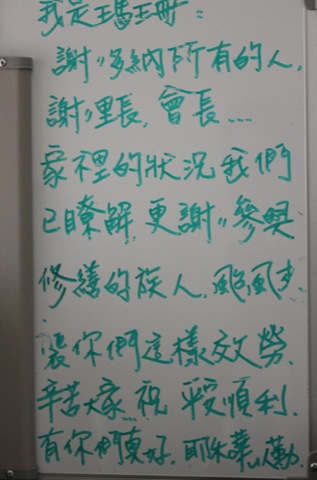 我是瑪珊:
謝〃多納所有的人,
謝〃里長, 會長....
家裡的狀況我們
已瞭解, 更謝〃參與
修繕的族人, 颱風
裏你們這樣效勞,
辛苦大家... 祝 平安順利.
有你們真好, 耶和華以勒.